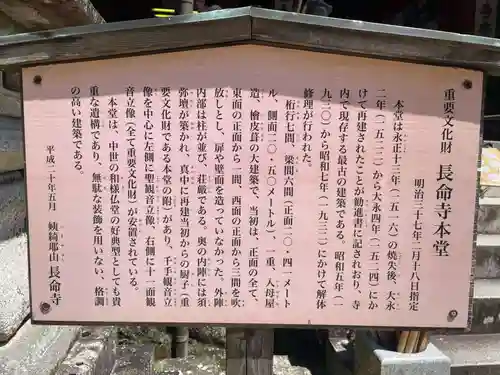 重要文化財　長命寺本堂
明治三十七年二月十八日指定
本堂は永正十三年（一五一六）の焼失後、大永
二年（一五二二）から大永四年（一五二四）にか
けて再建されたことが勧進書に記されおり、寺
内で現存する最古の建築である。昭和五年（一
九三〇）から昭和七年（一九三二）にかけて解体
修理が行われた。
桁行七間、梁間六間（正面二〇・四一メート
ル、側面二〇・五〇メートル）、一重、入母屋
造、檜皮葺の大建築で、当初は、正面の全て、
東面の正面から一間、西面の正面から三間を吹
放しとし、扉や壁面を造っていなかった。外陣
内部は柱が並び、荘厳である。奥の内陣には須
弥壇が築かれ、真中に再建当初からの厨子（重
要文化財である本堂の附）があり、千手観音立
像を中心に左側に聖観音立像、右側に十一面観
音立像（全て重要文化財）が安置されている。
本堂は、中世の和様仏堂の好典型としても貴
重な遺構であり、無駄な装飾を用いない、格調
の高い建築である。
平成二十年五月　姨綺耶山　長命寺